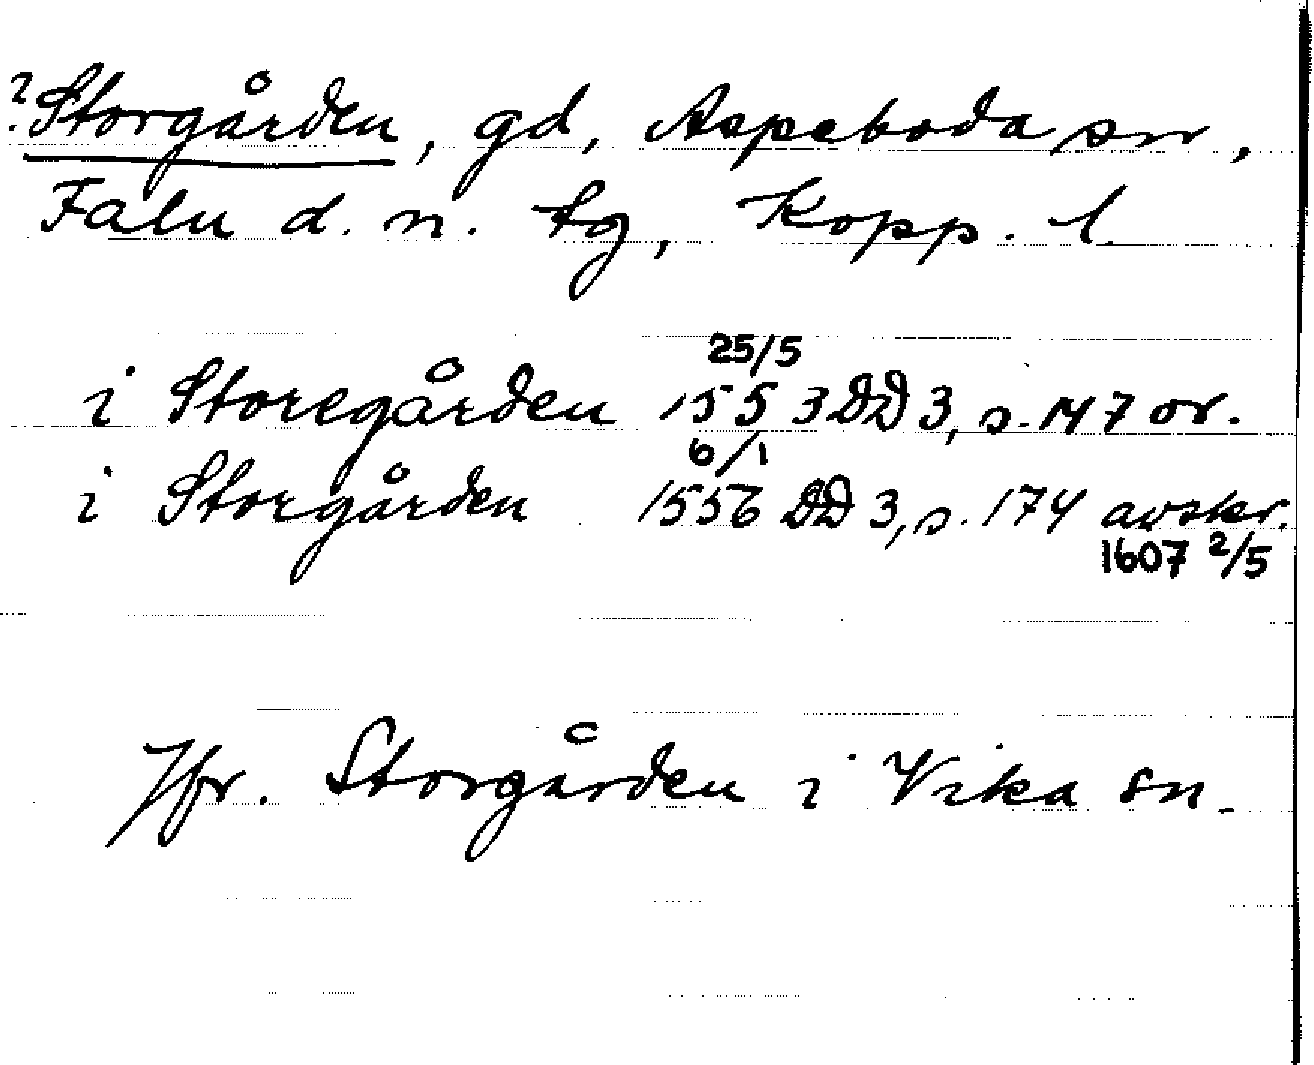 ? Storgården, gd, Aspeboda sn,
Falu d. n. tg, Kopp. l.
25/5
i Storegården 1553 DD 3, s. 147 or.
6/1
i Storgården 1556 DD 3, s. 174 avskr.
1607 2/5
Jfr. Storgården i Vika sn.